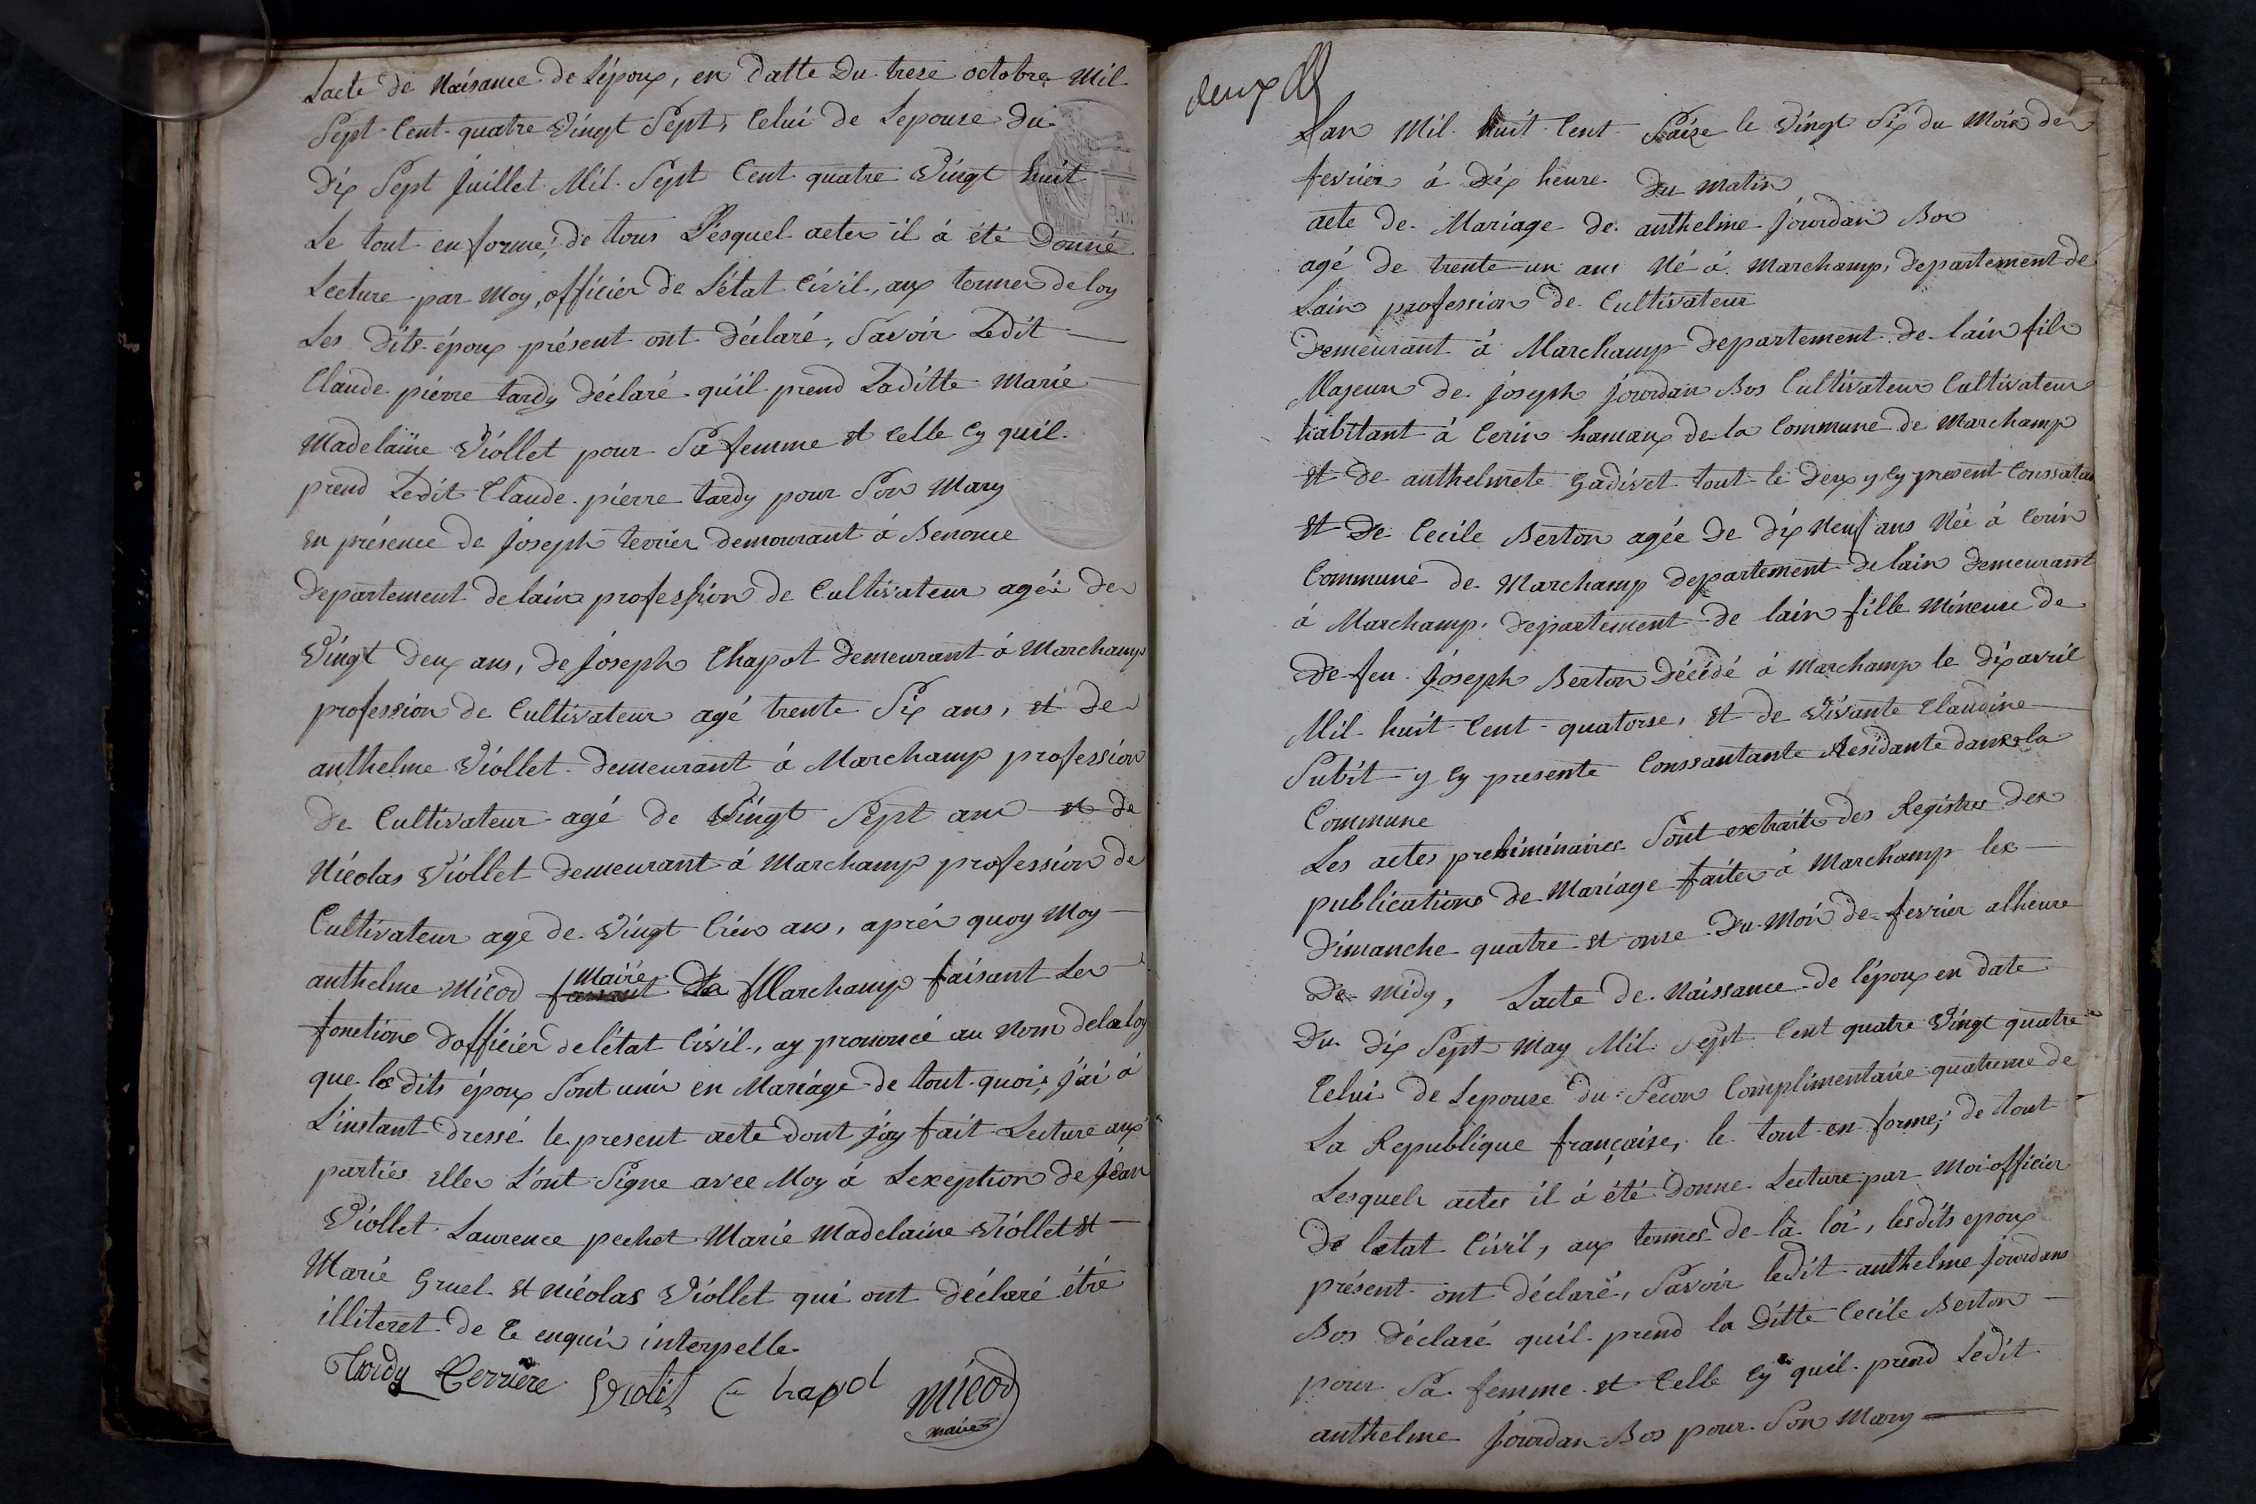 Lacte de Naisance de Lépoux, en datte Du trese octobre Mil
Sept Cent quatre Vingt Sept, Celui de Lepouse du
Dix Sept Juillet Mil Sept Cent quatre Vingt huit
Le tout en forme, de tous Lesquel actes il á été Donné
Lecture par Moy, officier de L'état Civil, aux termes de loy
Les dits époux présent ont déclaré, Savoir Ledit
Claude pierre tardy déclaré qu'il prend Laditte Marie
Madelaine Viollet pour Sa femme et Celle Cy quil
prend Ledit Claude pierre tardy pour Son Mary
En présence de Joseph terrier demourant á Benonce
departement delain profession de Cultivateur agée de
Vingt deux ans, de Joseph Chapot demeurant á Marchamp
profession de Cultivateur agé trente Six ans, et de
anthelme Viollet demeurant á Marchamp profession
de Cultivateur agé de Vingt Sept ans et de
Nicolas Viollet demeurant á Marchamp profession de
Cultivateur age de Vingt Cien ans, aprés quoy Moy
anthelme Micod Maire de Marchamp faisant Les
fonctions d'officier de l'état Civil, ay prononcé au Nom de la loy
que les dits époux Sont unis en Mariage de tout quoi, j'ai á
L'instant dressé le present acte dont j'ay fait Lecture aux
parties elles L'ont Signe avec Moy á Lexeption de Jéan
Viollet Laurence pechet Marie Madelaine Viollet et
Marie Gruel et Nicolas Viollet qui ont déclaré étre
illiteret de Ce enquis interpelle
Tardy Terriere Violet Chapot Micod
maire
deux
Lan Mil huit Cent Saize le Vingt Six du Mois de
fevrier á Dix heure Du Matin
acte de Mariage de anthelme Jourdan Bos
agé de trente un ans Né á Marchamp, departement de
Lain profession de Cultivateur
Demeurant á Marchamp departement de lain fils
Majeur de Joseph Jourdan Bos Cultivateur Cultivateur
habitant á Cerin hamaux de la Commune de Marchamp
et de anthelmete Gadivet tout le deux y Cy present
et De Cecile Berton agée de dix Neuf ans Née á Cerin
Commune de Marchamp departement de lain demeurant
á Marchamp, departement de lain fille Mineure de
De feu Joseph Berton Décédé á Marchamp le dix avril
Mil huit Cent quatorse, et de Vivante Claudine
Subit y Cy presente Conssantante Residante dans la
Commune
Les actes preliminaires Sont extraits des Registres des
publications de Mariage faites á Marchamp les
Dimanche quatre et onse Du Mois de fevrier alheure
De Midy, Lacte de Naissance de l'époux en date
Du dix Sept May Mil Sept Cent quatre Vingt quatre
Celui de Lepouse du Secon Complimentaire quatrieme de
La Republique française, le tout en forme; de tout
Lesquels actes il á été donne Lecture par Moi officier
De letat Civil, aux termes de la loi, lesdits epoux
présent ont déclaré, Savoir ledit anthelme Jourdan
Bos déclaré quil prend la ditte Cecile Berton
pour Sa femme et Celle Cy quil prend Ledit
anthelme Jourdan Bos pour Son Mary